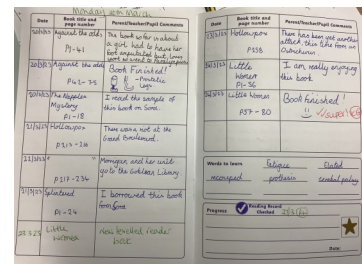 Monday 20th March
Date
Book title and page number
Parent/Teacher/Pupil Comments
20/3/23
Against the odds
P1-41
The book so far is about
a girl had to have her
foot amputated but loves
20/3/23
Against the odds
P42-75
Book Finished!
20/3/23
The Nopples
Mystery
P1-18
I read the sample of
this book on Sora.
21/3/23
Hollowpox
P213-216
There was a riot at the
Grand Boulevard.
22/3/23
"
P217-234
Morrigan and her unit
go to the Gobleian Library
21/3/23
Splintered
P1-24
I borrowed this book
from Sora
23.3.23
Little
Women
New levelled reader
book
Date
Book title and page number
Parent/Teacher/Pupil Comments
Hollowpox
P258
There has been yet another
attack, this time from an
Little
Women
P1-56
I am really enjoying
this book
Little Women
P57-80
Book finished!
super!
Words to learn
Fatigue
Elated
prosthesis
cerebral palsy
Progress
Reading Record
Checked
Date: